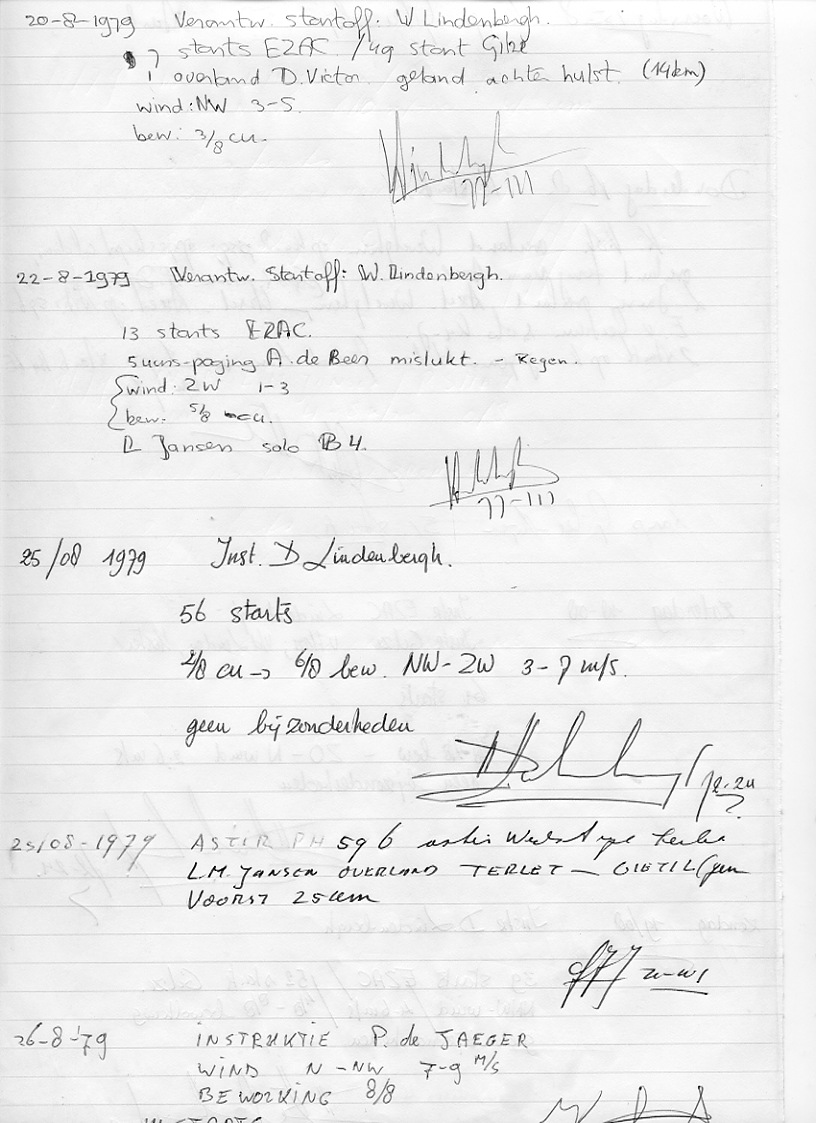 20-8-1979 Verantw. startoff: W Lindenbergh.
7 starts EZAC / 49 start Gilze
1 overland D. Victor geland achter hulst. (14km)
wind: NW 3-5.
bew: 3/8 cu.
22-8-1979 Verantw. Startoff: W. Lindenbergh.
13 starts EZAC.
5 uurs-poging A. de Beer mislukt. - Regen.
wind: ZW 1-3
bew. 5/8 cu.
Jansen solo B4.
25/08 1979 Inst. D Lindenbergh.
56 starts
2/8 cu → 6/8 bew. NW-ZW 3-7 m/s.
geen bijzonderheden
25/08-1979 ASTIR PH 596
L.M. JANSEN OVERLAND TERLET -
VOORST 25 km
26-8-'79 INSTRUKTIE P. de JAEGER
WIND N-NW 7-9 M/S
BEWORKING 8/8